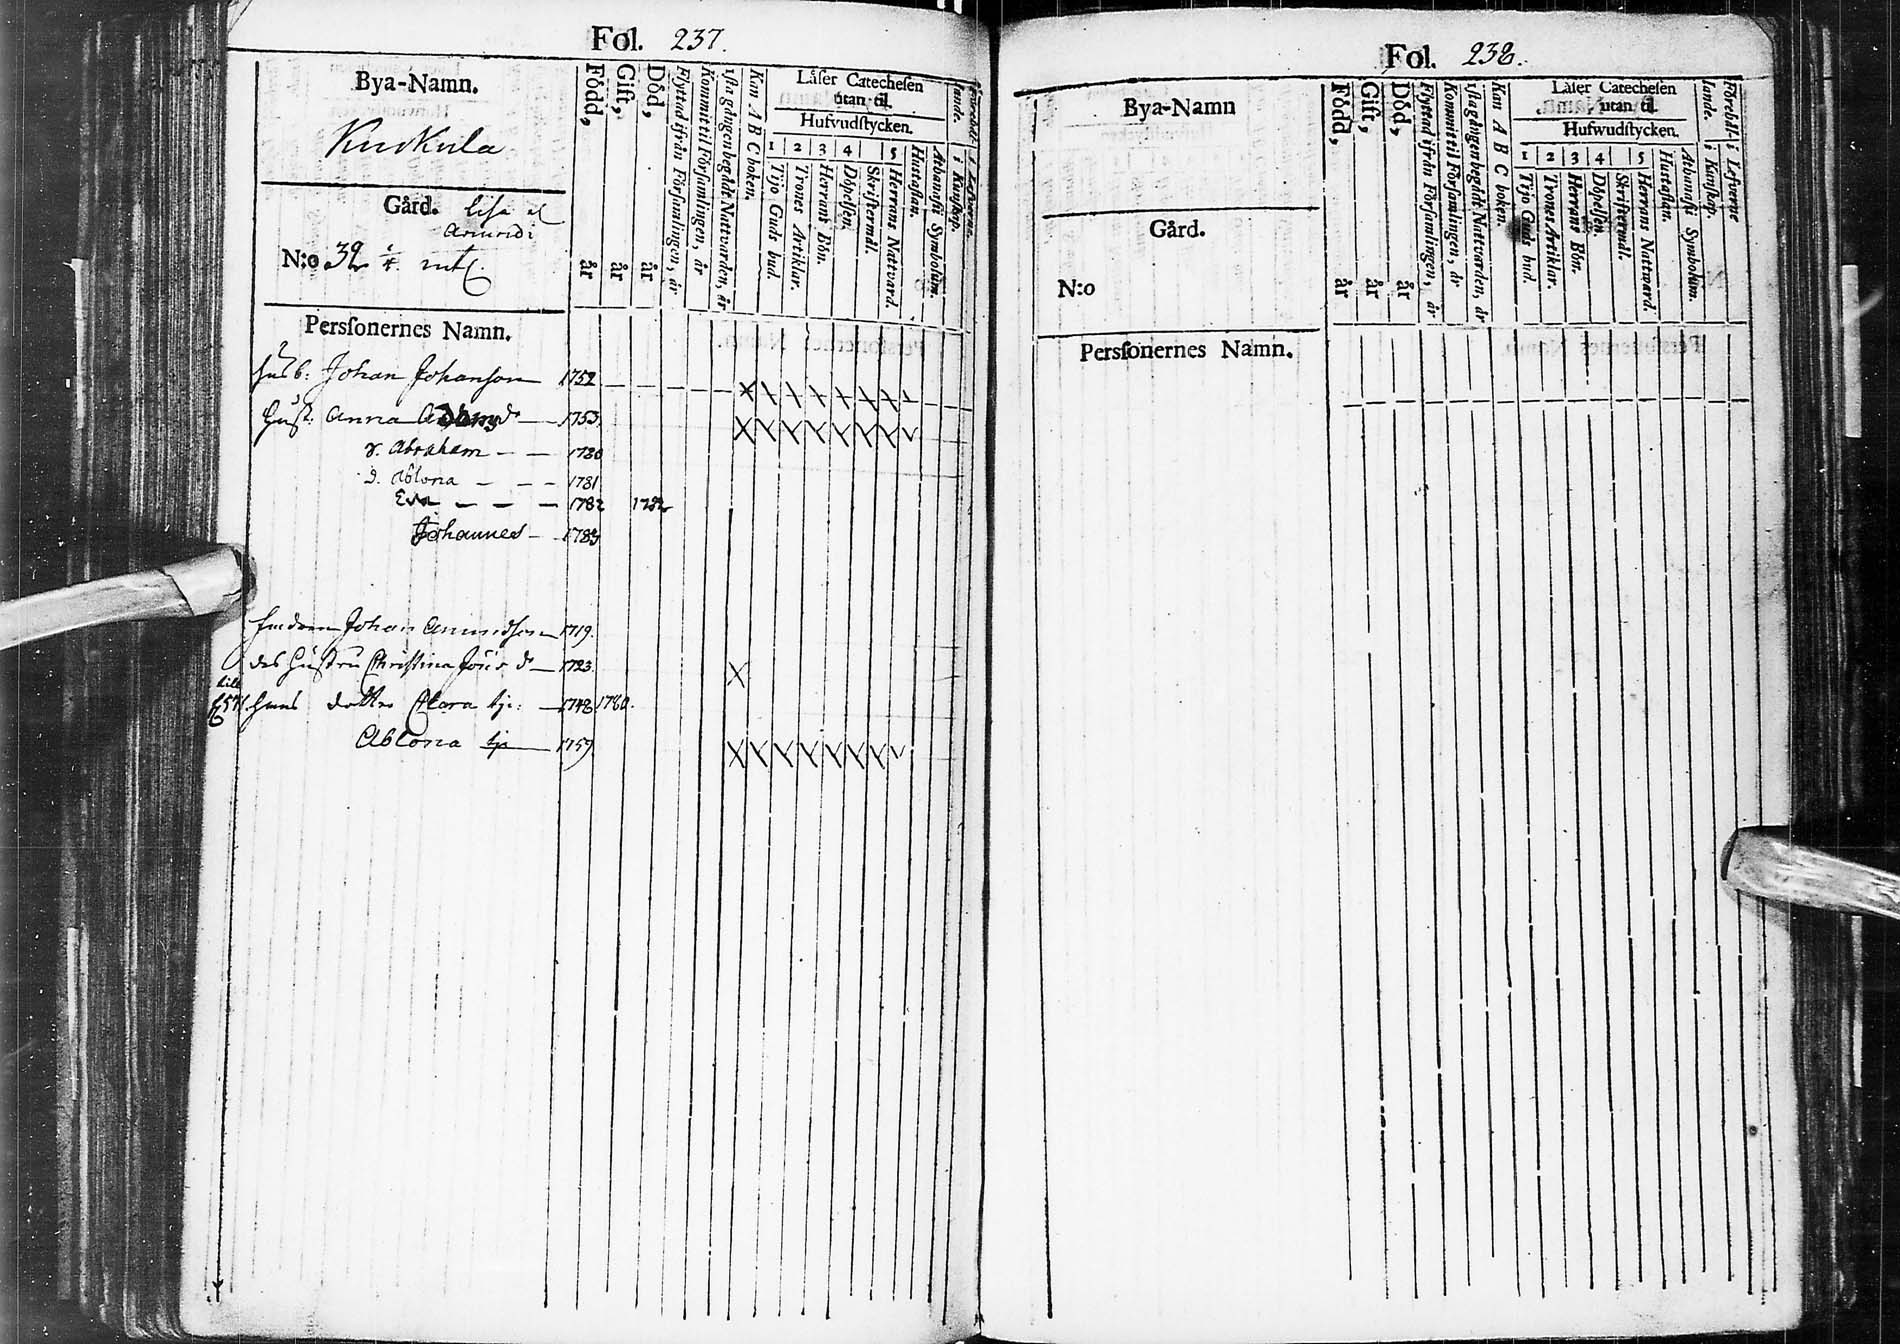 Fol. 237.
Bya-Namn.
Kurkula
Gård.
N:o 32
Född, år
Gift, år
Död, år
Flyttad ifrån Församlingen, år
Kommit til Församlingen, år
1sta gången begådt Nattvarden, år
Kan A B C boken.
Läser Catechesen
utan til.
Hufvudstycken.
1 2 3 4 5
Tijo Guds bud.
Trones Artiklar.
Herrans Bön.
Döpelsen.
Skriftermål.
Herrans Nattvard.
Hustaflan.
Athanasii Symbolum.
i Kunskap.
Perssonernes Namn.
Husb. Johan Johansson 1752
Hust. Anna 1753
s. Abraham — — 1780
d. Ablona — — — 1781
Eva — — — — 1782 1782
Johannes — 1783
Johan Amundsson 1719.
des Hustru Christina d° — 1723.
hans dotter Clara — 1748 1780.
Ablona 1759
Fol. 238.
Bya-Namn
Gård.
N:o
Född, år
Gift, år
Död, år
Flyttad ifrån Församlingen, år
Kommit til Församlingen, år
1sta gången begådt Nattvarden, år
Kan A B C boken.
Läser Catechesen
utan til.
Hufwudstycken.
1 2 3 4 5
Tijo Guds bud.
Trones Artiklar.
Herrans Bön.
Döpelsen.
Skriftermål.
Herrans Nattvard.
Hustaflan.
Athanasii Symbolum.
i Kunskap.
i Lefverne
Perssonernes Namn.